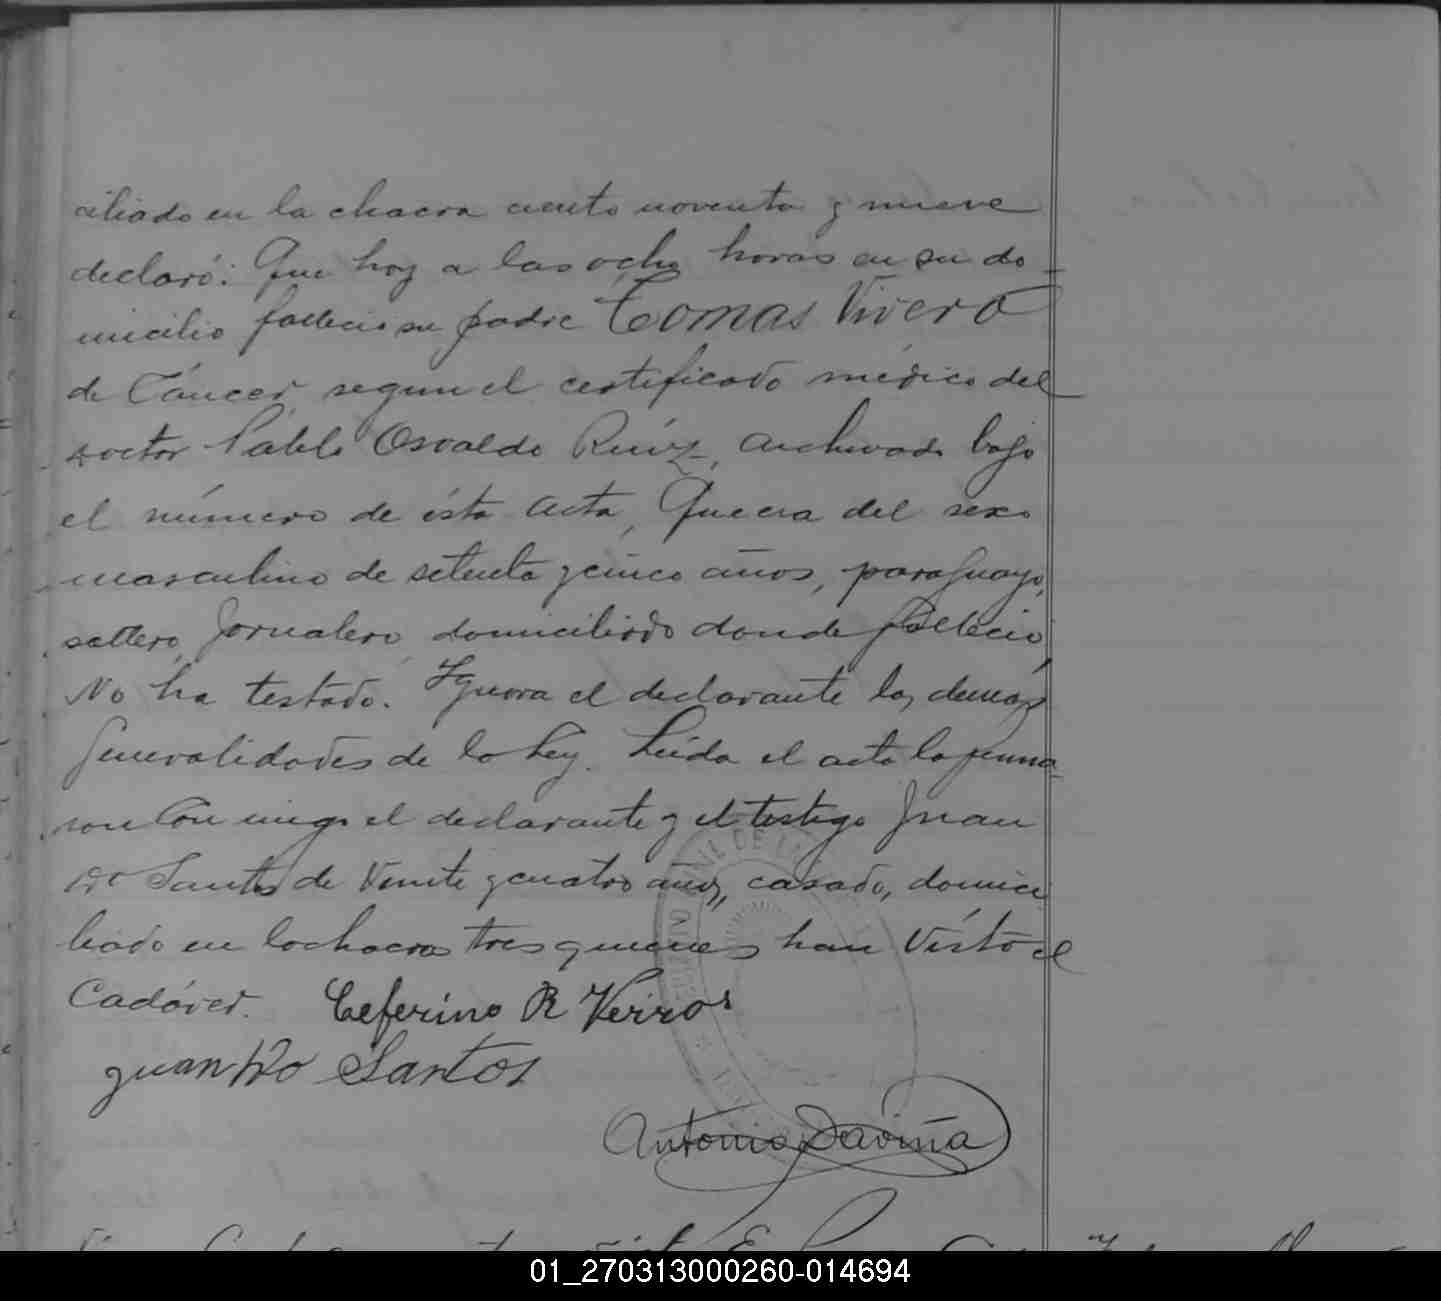 ciliado en la chacra ciento noventa y nueve
declaró: Que hoy a las ocho horas en su do-
micilio fallecio su padre Tomas Vivero
de Cáncer, segun el certificado médico del
doctor Pablo Osvaldo Ruíz, archivado bajo
el número de ésta acta, Que era del sexo
masculino de setenta y cinco años, paraguayo,
soltero, Jornalero, domiciliado donde fallecio,
No ha testado. Ygnora el declarante las demás
Generalidades de la Ley. Leída el acta la firma-
ron Con migo el declarante y el testigo Juan
Do Santos de Veinte y cuatro años, casado, domici
liado en la chacra tres quienes han Visto el
Cadáver. Ceferino R
Juan Do Santos
Antonio Daviña
01_270313000260-014694